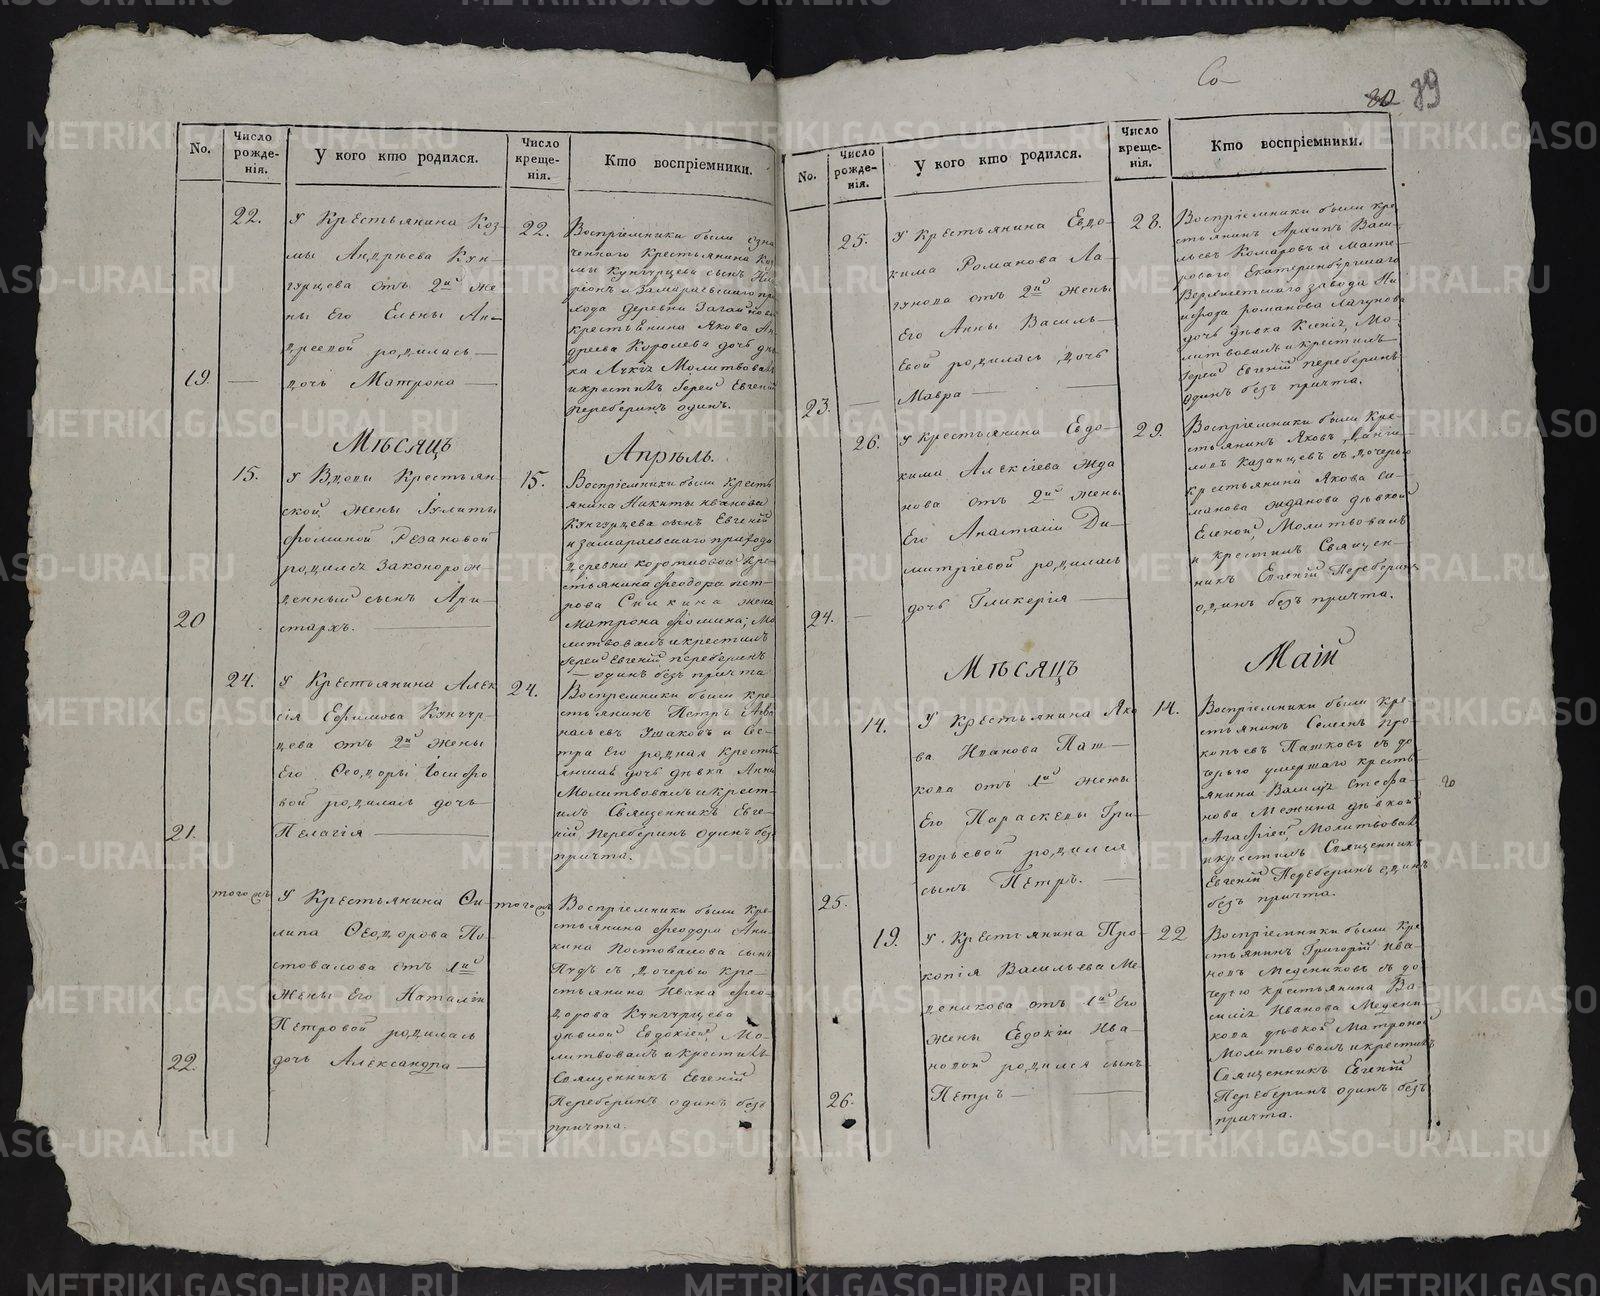 Со
80 89
No.
Число рожде-нія.
У кого кто родился.
Число креще-нія.
Кто воспріемники.
22.
У Крестьянина Коз-
мы Андрѣева Кун-
гурцева отъ 2й же
ны Его Елены Ан-
дреевой родилась
19. — дочь Матрона
22.
Воспріемники были озна
ченного Крестьянина Коз
мы Кунгурцева сынъ
и Замараевскаго при
хода деревни
крестьянина Якова Ан
дреева Королева дочь дѣв
ка Молитвовалъ
и крестилъ Іерей Евгеній
Переберинъ одинъ.
Мѣсяцъ Апрѣль.
15.
У Вдовы Крестьян-
ской жены Іулиты
Фоминой Резановой
родился Законорож-
денный сынъ Ари-
20 стархъ.
15.
Воспріемники были кресть
янина Никиты Иванова
Кунгурцева сынъ Евгеній
и замараевскаго прихода
деревни коротковой кре-
стьянина Феодора пет-
рова Спикина жена
Матрона Фомина; Мо
литвовалъ и крестилъ
Іерей Евгеній переберинъ
одинъ безъ причта
24.
У Крестьянина Алек
сія Ефимова Кунгур-
цева отъ 2й жены
Его Феодоры Іосифо
вой родилась дочь
21. Пелагія
24.
Воспріемники были кре-
стьянинъ Петръ Афо
насьевъ Ушаковъ и Сес-
тра Его родная Кресть
янская дочь дѣвка Анна
Молитвовалъ и крест-
илъ Священникъ Евге-
ній Переберинъ одинъ без
причта.
того жъ
У Крестьянина Фи-
липа Феодорова По-
стовалова отъ 1й
Жены Его Наталіи
Петровой родилась
22. дочь Александра
того жъ
Воспріемники были Кре-
стьянина Феодора Ани-
кина Постовалова сынъ
Пудъ съ дочерью кре-
стьянина Ивана Фео-
дорова Кунгурцева
дѣвкой Евдокіей, Мо-
литвовалъ и крестилъ
Священникъ Евгеній
Переберинъ одинъ безъ
причта.
No.
Число рожде-нія.
У кого кто родился.
Число креще-нія.
Кто воспріемники.
25.
У Крестьянина Евдо-
кима Романова Ла-
гунова отъ 2й жены
Его Анны Василь-
евой родилась дочь
23. — Мавра
28.
Воспріемники были кре
стьянинъ Архипъ Васи-
льевъ Комаровъ и Масте-
рового Екатеринбургскаго
Верхисетскаго завода Ни
кифора Романова Лагунова
дочь дѣвка Ксенія, Мо-
литвовалъ и крестилъ
Іерей Евгеній переберинъ
одинъ безъ причта.
26.
У крестьянина Евдо-
кима Алексіева Жда
нова отъ 2й жены
Его Анастасіи Ди-
митріевой родилась
24. — дочь Гликерія
29.
Воспріемники были Кре-
стьянинъ Яковъ Дани-
ловъ Казанцевъ съ дочерью
крестьянина Якова Си-
манова Жданова дѣвкой
Еленой, Молитвовалъ
и крестилъ Священ-
никъ Евгеній Переберинъ
одинъ безъ причта.
Мѣсяцъ Маій
14.
У Крестьянина Яко
ва Иванова Паш-
кова отъ 1й жены
Его Параскевы Гри-
горьевой родился
25. сынъ Петръ.
14.
Воспріемники были Кре
стьянинъ Семенъ Про-
копьевъ Пашковъ съ до
черью умершаго кресть
янина Василья Стефа-
нова Межина дѣвкой
Агафіей Молитвовалъ
и крестилъ Священникъ
Евгеній Переберинъ одинъ
безъ причта.
19.
У Крестьянина Про-
копія Васильева Ме-
деникова отъ 1й Его
жены Евдокіи Ива-
новой родился сынъ
26. Петръ
22
Воспріемники были Кре
стьянинъ Григорій Ива-
новъ Медениковъ съ до
черью крестьянина Ва-
силія Иванова Медени-
кова дѣвкой Матроной
Молитвовалъ и крестилъ
Священникъ Евгеній
Переберинъ одинъ безъ
причта.
METRIKI.GASO-URAL.RU